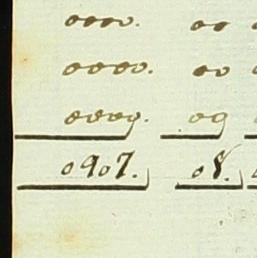 0000. 00
0000. 00
0000. 00
0907. 08.